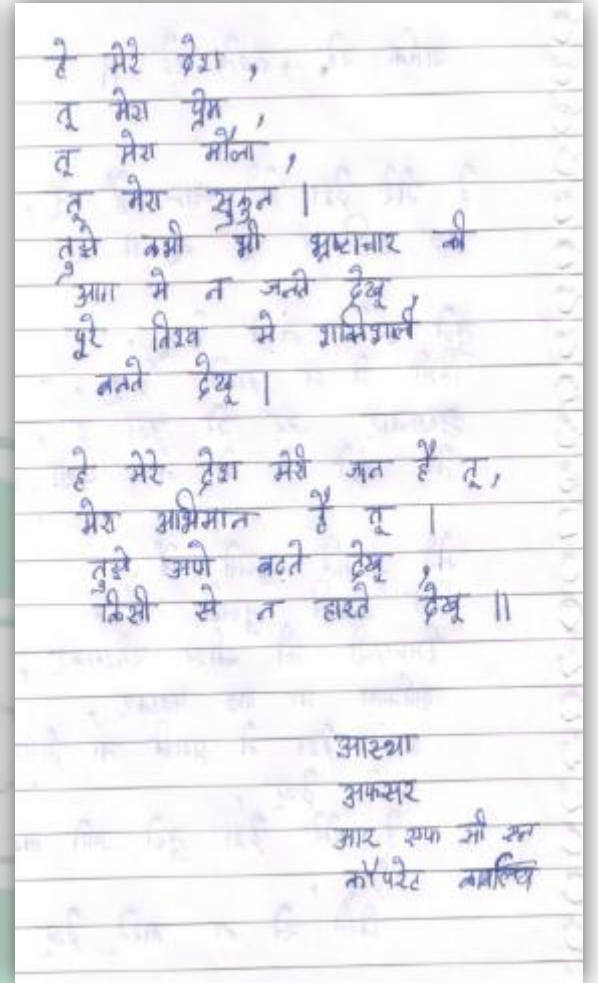 हे मेरे देश ,
तू मेरा प्रेम ,
तू मेरा मौला ,
तू मेरा सुकुन |
तुझे कभी भी भ्रष्टाचार की
आग मे न जलते देखू ,
पूरे विश्व मे शक्तिशाली
बनते देखू |
हे मेरे देश मेरी जान है तू ,
मेरा अभिमान है तू |
तुझे आगे बढ़ते देखू ,
किसी से न हारते देखू ||
आस्था
अफसर
आर एफ सी एल
कॉपरेट